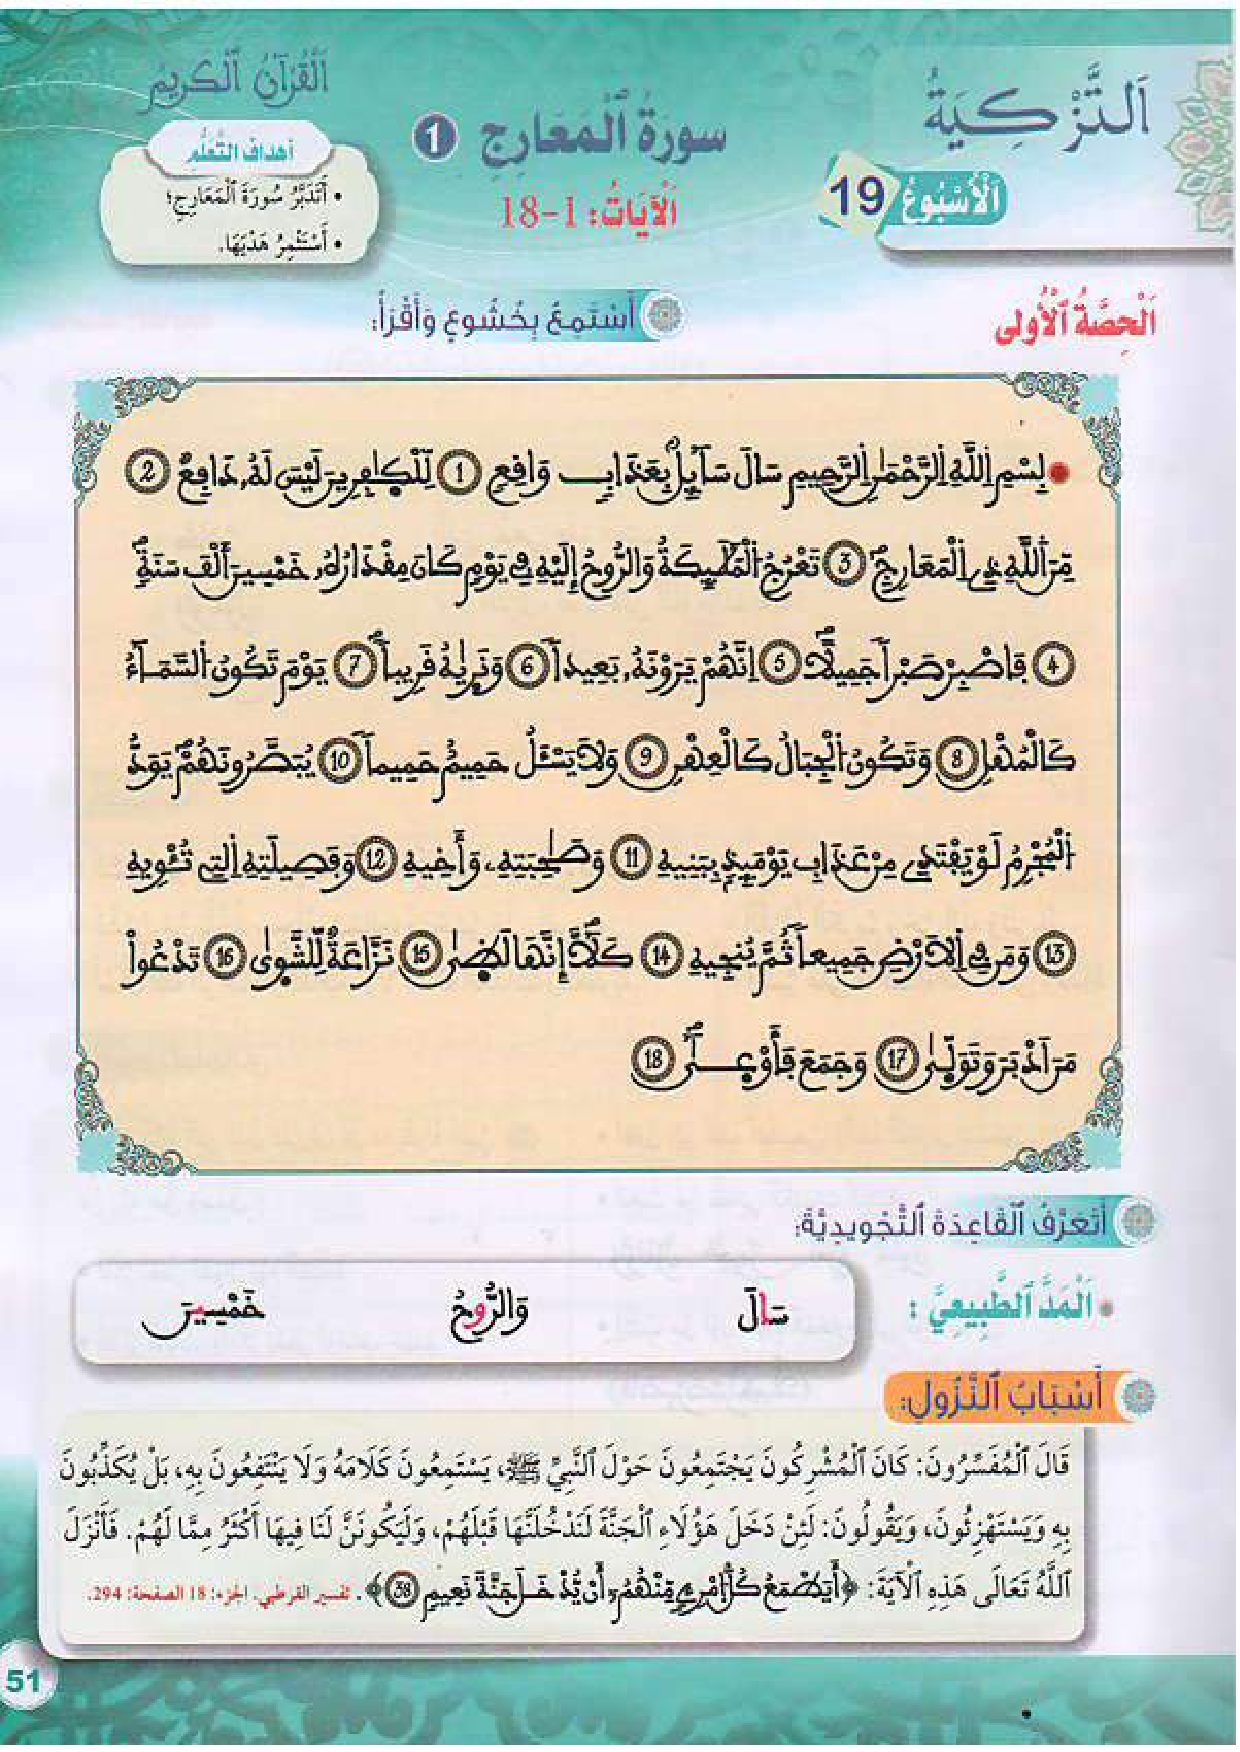 اَلتَّزْكِيَةُ
اَلْقُرْآنُ ٱلْكَرِيمُ
سورَةُ ٱلْمَعَارِجِ 1
اَلْأُسْبُوعُ 19
اَلْآيَاتُ: 1-18
أهداف التَّعَلُّمِ
• أَتَدَبَّرُ سُورَةَ ٱلْمَعَارِجِ؛
• أَسْتَثْمِرُ هَدْيَهَا.
اَلْحِصَّةُ ٱلْأُولى
أَسْتَمِعُ بِخُشُوعٍ وَأَقْرَأُ:
بِسْمِ اِللَّهِ اِلرَّحْمَٰنِ اِلرَّحِيمِ سَالَ سَآئِلُۢ بِعَذَابٖ وَاقِعٖ 1 لِّلْكٰ۪فِرِينَ لَيْسَ لَهُۥ دَافِعٞ 2
مِّنَ اَللَّهِ ذِے اِلْمَعَارِجِۖ 3 تَعْرُجُ اُلْمَلَٰٓئِكَةُ وَالرُّوحُ إِلَيْهِ فِے يَوْمٖ كَانَ مِقْدَارُهُۥ خَمْسِينَ أَلْفَ سَنَةٖۖ
4 فَاصْبِرْ صَبْراٗ جَمِيلاًۖ 5 اِنَّهُمْ يَرَوْنَهُۥ بَعِيداٗ 6 وَنَر۪ىٰهُ قَرِيباٗۖ 7 يَوْمَ تَكُونُ اُلسَّمَآءُ
كَالْمُهْلِ 8 وَتَكُونُ اُلْجِبَالُ كَالْعِهْنِ 9 وَلَا يَسْـَٔلُ حَمِيمٌ حَمِيماٗ 10 يُبَصَّرُونَهُمْۖ يَوَدُّ
اُلْمُجْرِمُ لَوْ يَفْتَدِے مِنْ عَذَابِ يَوْمَئِذِۢ بِبَنِيهِ 11 وَصَٰحِبَتِهِۦ وَأَخِيهِ 12 وَفَصِيلَتِهِ اِلتِے تُـْٔوِيهِ
13 وَمَن فِے اِلَارْضِ جَمِيعاٗ ثُمَّ يُنجِيهِ 14 كَلَّآۖ إِنَّهَا لَظ۪ىٰ 15 نَزَّاعَةٞ لِّلشَّو۪ىٰ 16 تَدْعُواْ
مَنَ اَدْبَرَ وَتَوَلّ۪ىٰ 17 وَجَمَعَ فَأَوْع۪ىٰٓۖ 18
أَتَعَرَّفُ ٱلْقَاعِدَةَ ٱلتَّجْوِيدِيَّةَ:
• اَلْمَدَّ ٱلطَّبِيعِيَّ :
سَالَ وَالرُّوحُ خَمْسِينَ
أَسْبَابُ ٱلنُّزُولِ:
قَالَ ٱلْمُفَسِّرُونَ: كَانَ ٱلْمُشْرِكُونَ يَجْتَمِعُونَ حَوْلَ ٱلنَّبِيِّ ﷺ، يَسْتَمِعُونَ كَلَامَهُ وَلَا يَنْتَفِعُونَ بِهِ، بَلْ يُكَذِّبُونَ
بِهِ وَيَسْتَهْزِئُونَ، وَيَقُولُونَ: لَئِنْ دَخَلَ هَؤُلَاءِ ٱلْجَنَّةَ لَنَدْخُلَنَّهَا قَبْلَهُمْ، وَلَيَكُونَنَّ لَنَا فِيهَا أَكْثَرُ مِمَّا لَهُمْ. فَأَنْزَلَ
اللَّهُ تَعَالَى هَذِهِ ٱلْآيَةَ: ﴿أَيَطْمَعُ كُلُّ اُمْرِےٕٖ مِّنْهُمُۥٓ أَنْ يُّدْخَلَ جَنَّةَ نَعِيمٖ 38﴾. تفسير القرطبي. الجزء: 18 الصفحة: 294.
51